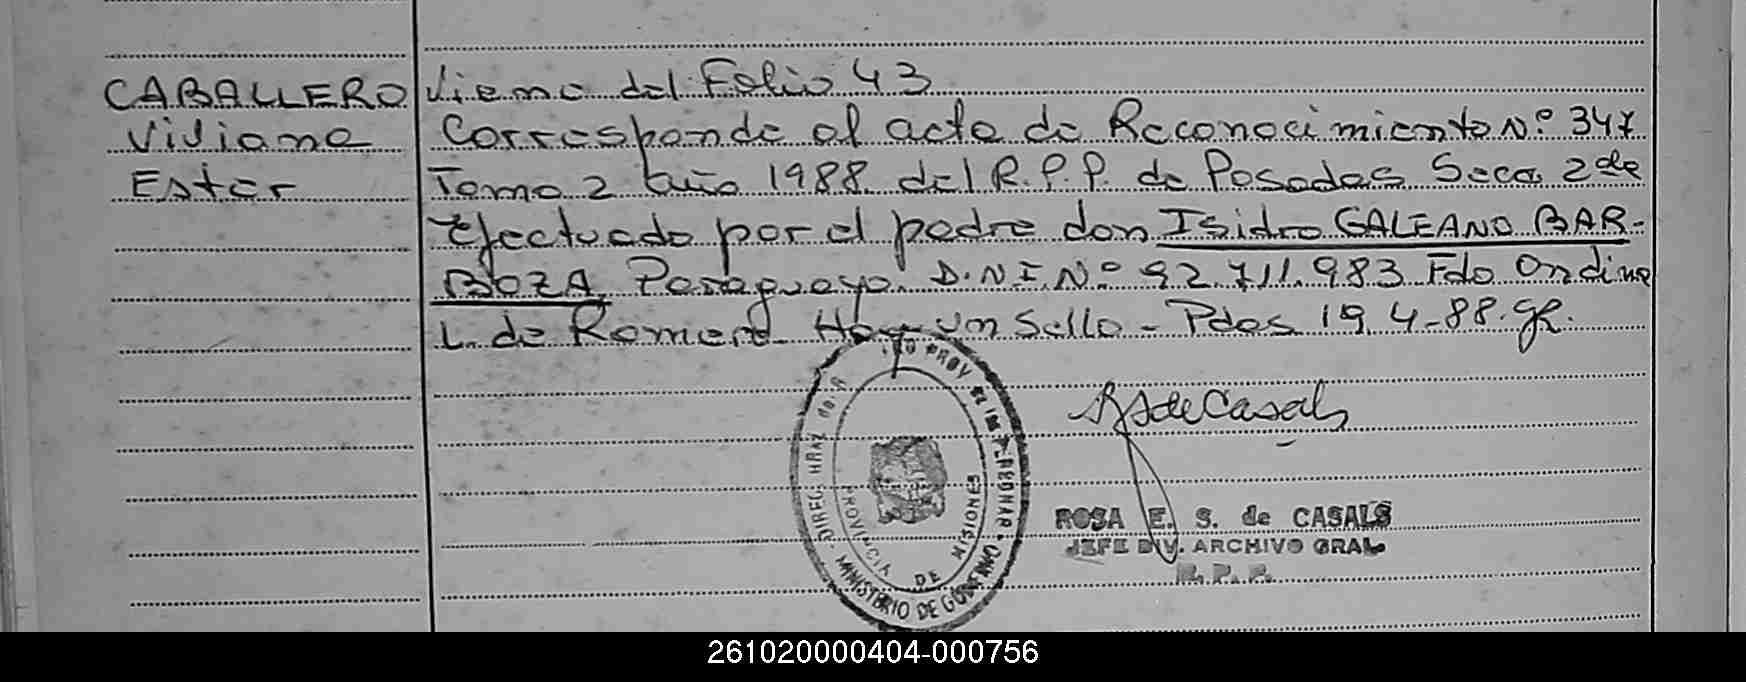 CABALLERO
Viviana
Ester
Viene del Folio 43
Corresponde al acta de Reconocimiento Nº 347
Tomo 2 Año 1988 del R.P.P. de Posadas Secc 2da
Efectuado por el padre don Isidro GALEANO BAR-
BOZA Paraguayo D.N.I.Nº 92.711.983 Fdo Ondina
L. de Romero Hay un Sello - Pdas 19 4-88.
RSdeCasals
ROSA E. S. de CASALS
JEFE DIV. ARCHIVO GRAL
R.P.P.
PROV. DE LAS PERSONAS
MINISTERIO DE GOBIERNO
PROVINCIA DE MISIONES
261020000404-000756